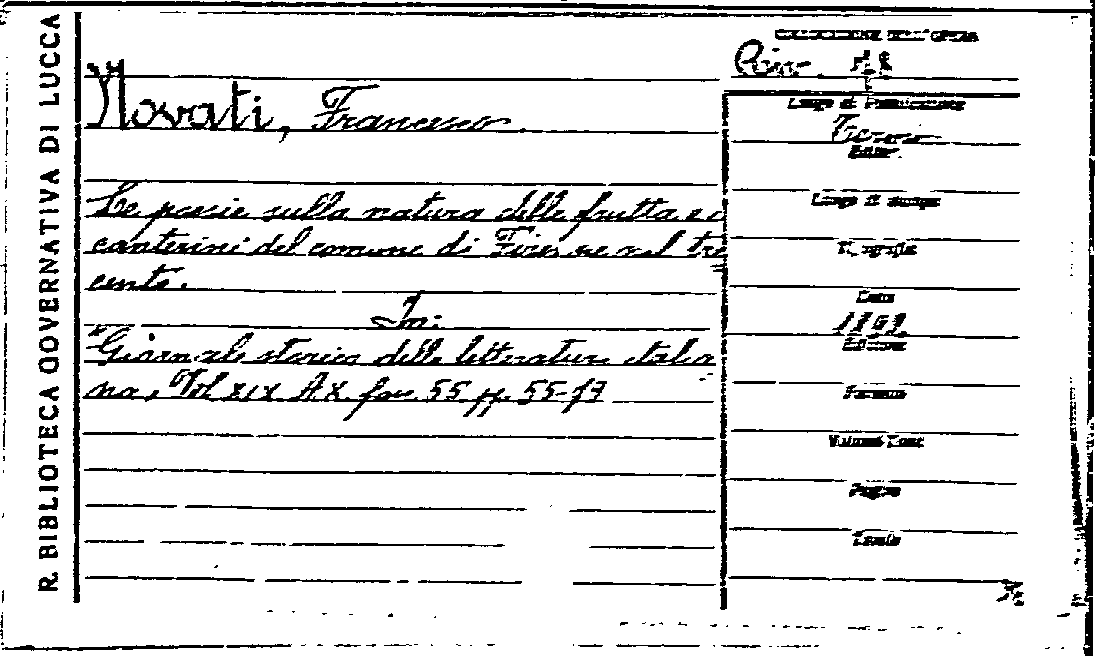 R. BIBLIOTECA GOVERNATIVA DI LUCCA
COLLOCAZIONE DELL'OPERA
Riv.
Novati, Francesco
Luogo di Pubblicazione
Torino
Editore
Le poesie sulla natura delle frutta e i
canterini del comune di Firenze nel tre
cento.
In:
"Giornale storico della letteratura italia
na, Vol XIX AX fasc 55 pp. 55-
Luogo di stampa
Tipografia
Data
Edizione
Formato
Volume
Pagine
Tavole